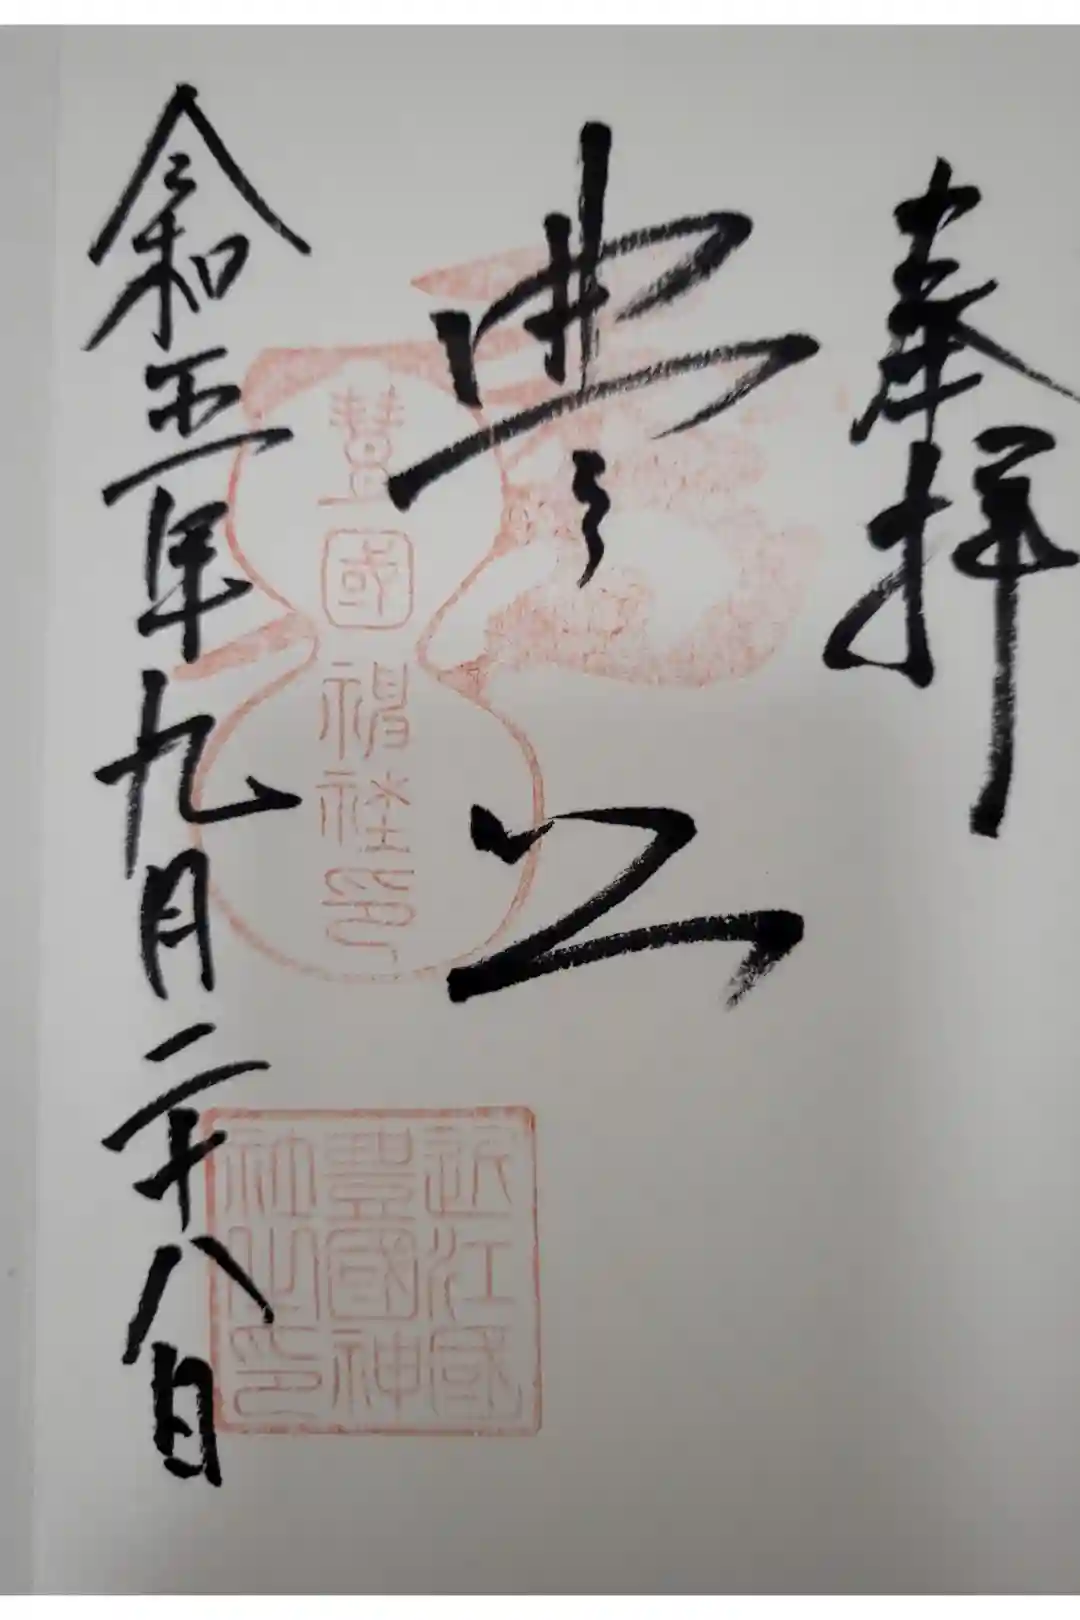 奉拝
豊公
豊國神社印
近江國
豊國神
社之印
令和五年九月二十八日